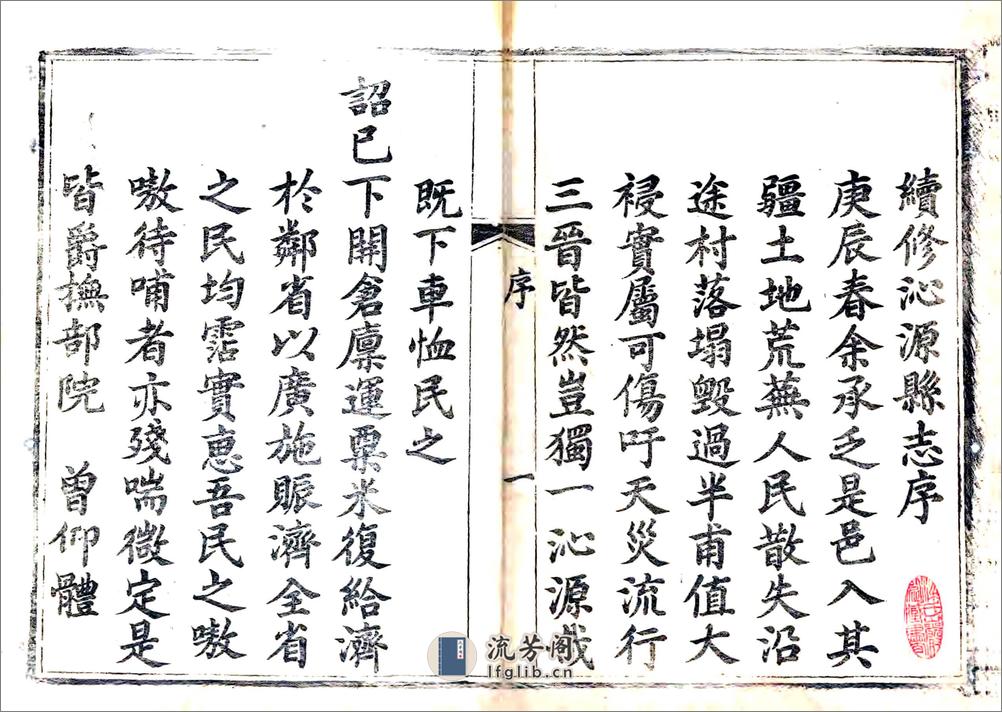 續修沁源縣志序
庚辰春余承乏是邑入其
疆土地荒蕪人民散失沿
途村落塌毀過半甫值大
祲實屬可傷吁天災流行
三晉皆然豈獨一沁源哉
序
一
既下車恤民之
詔已下開倉廩運粟米復給濟
於鄰省以廣施賑濟全省
之民均霑實惠吾民之嗷
嗷待哺者亦殘喘微定是
皆爵撫部院 曾仰體
流芳阁
lfglib.cn